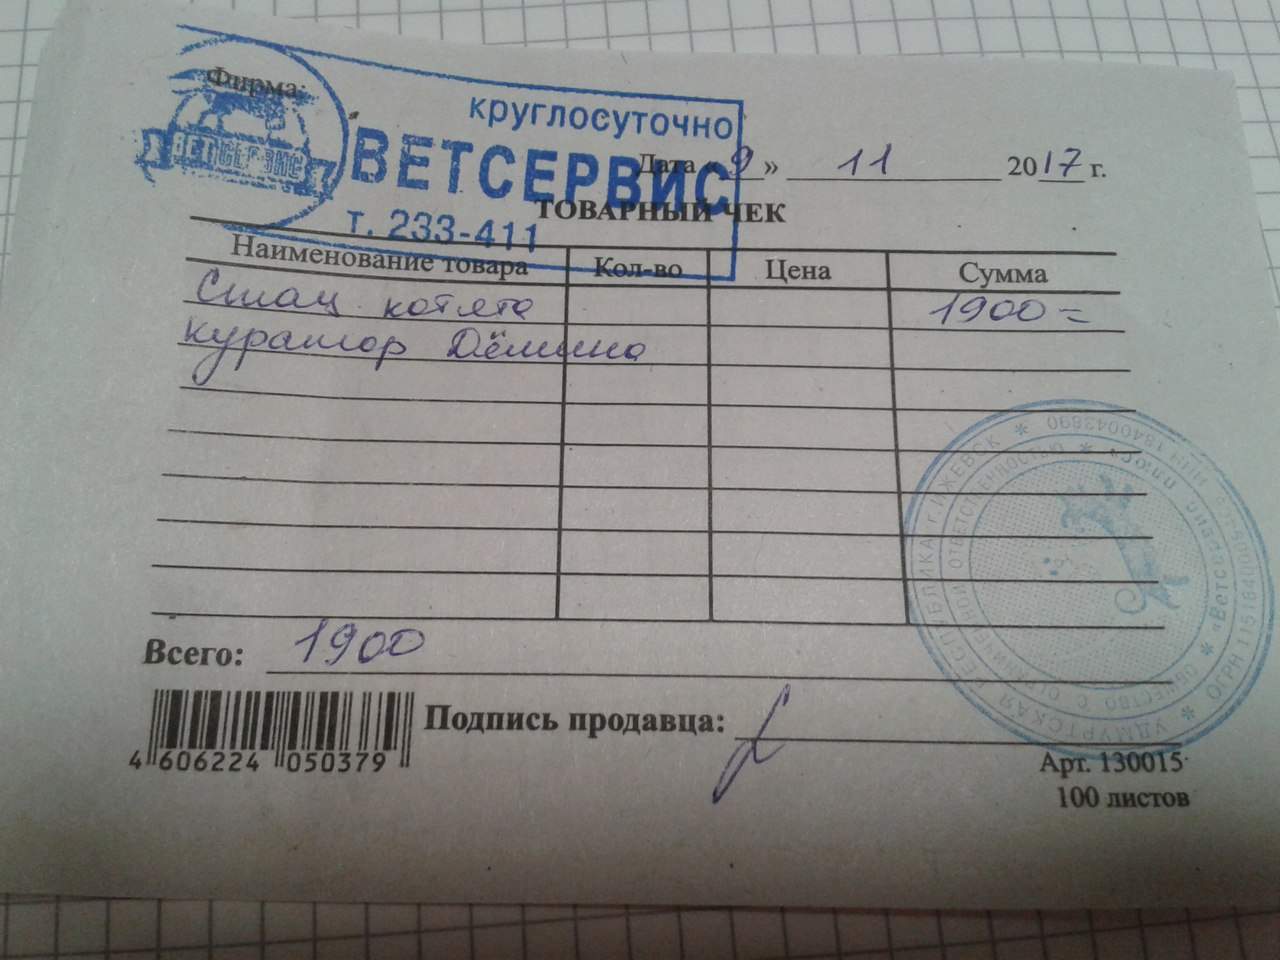 Фирма:
круглосуточно
ВЕТСЕРВИС
ВЕТСЕРВИС
т. 233-411
Дата «9» 11 2017 г.
ТОВАРНЫЙ ЧЕК
Наименование товара Кол-во Цена Сумма
Стац. котята 1900=
куратор Дёмина
Всего: 1900
Подпись продавца:
4 606224 050379
Арт. 130015
100 листов
УДМУРТСКАЯ РЕСПУБЛИКА г. ИЖЕВСК * ИНН 1840043890
ОБЩЕСТВО С ОГРАНИЧЕННОЙ ОТВЕТСТВЕННОСТЬЮ * «Ветсервис плюс» *